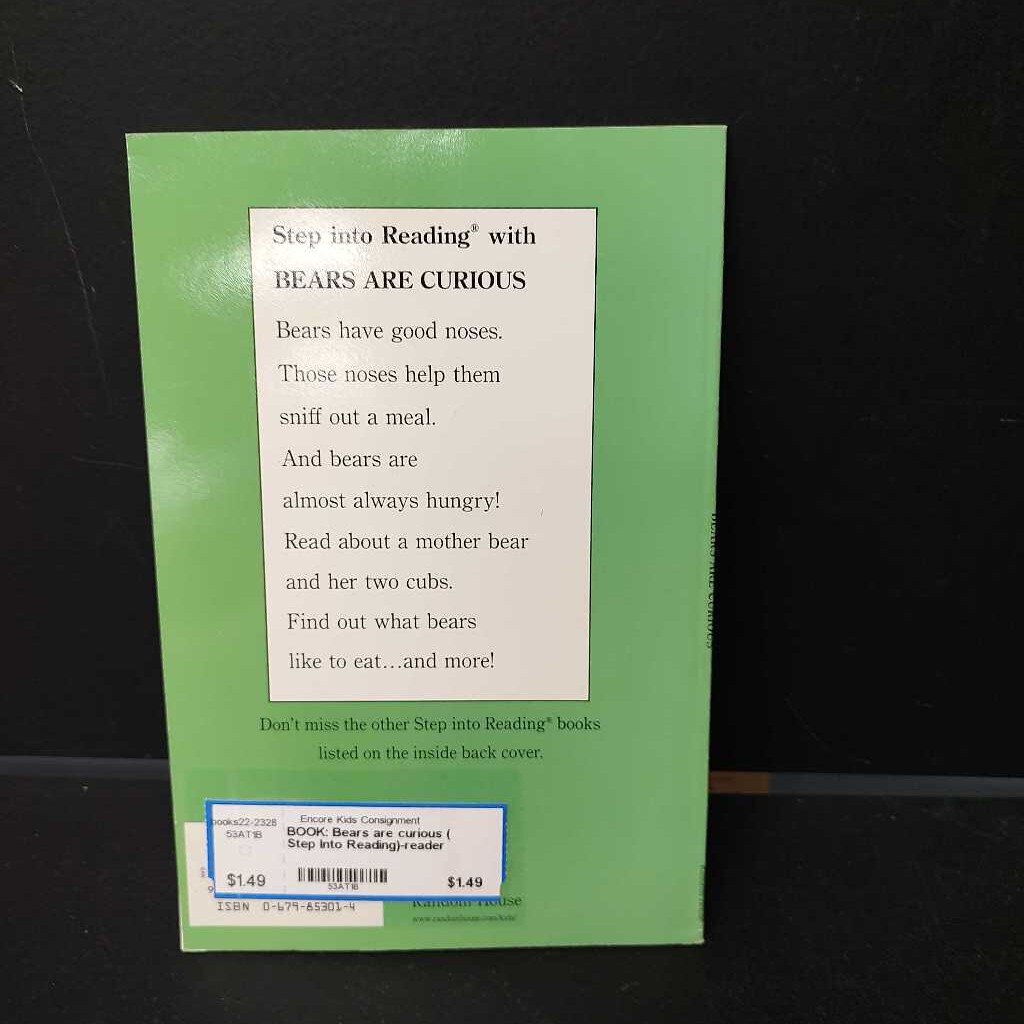 Step into Reading® with
BEARS ARE CURIOUS
Bears have good noses.
Those noses help them
sniff out a meal.
And bears are
almost always hungry!
Read about a mother bear
and her two cubs.
Find out what bears
like to eat...and more!
Don't miss the other Step into Reading® books
listed on the inside back cover.
books22-2328
53AT1B
Encore Kids Consignment
BOOK: Bears are curious (
Step Into Reading)-reader
$1.49
53AT1B
$1.49
ISBN 0-679-85301-4
Random House
www.randomhouse.com/kids
BEARS ARE CURIOUS